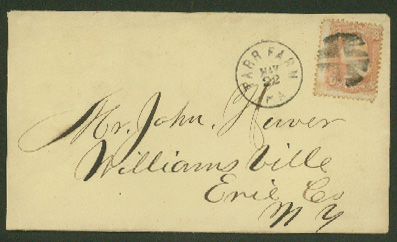 TARR FARM
MAY
22
PA
Mr. John. Hewer
Williamsville
Erie Co
N Y